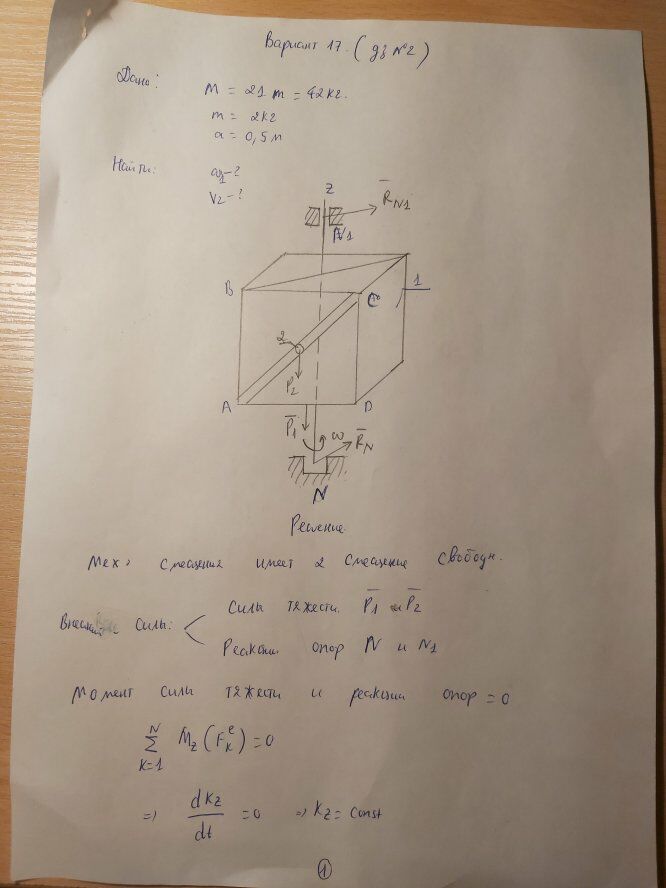 Вариант 17. (дз №2)
Дано:
M = 21 m = 42кг.
m = 2кг
a = 0,5м
Найти:
ω1 - ?
V2 - ?
Z
R̅N1
N1
B
C
1
2
P2
A
D
P̅1
ω
R̅N
N
Решение.
Мех. имеет 2 свободн.
Внешние силы:
Силы тяжести P̅1 и P̅2
Реакции опор N и N1
Момент силы тяжести и реакции опор = 0
N
∑ Mz (Fке) = 0
K=1
=> dkz/dt = 0 => kz = const
1